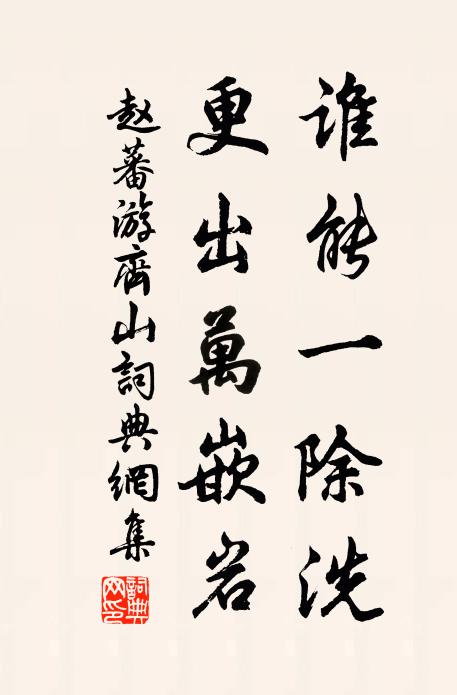 谁能一除洗
更出萬嵌岩
赵蕃游齊山詞典網集
詞典网印